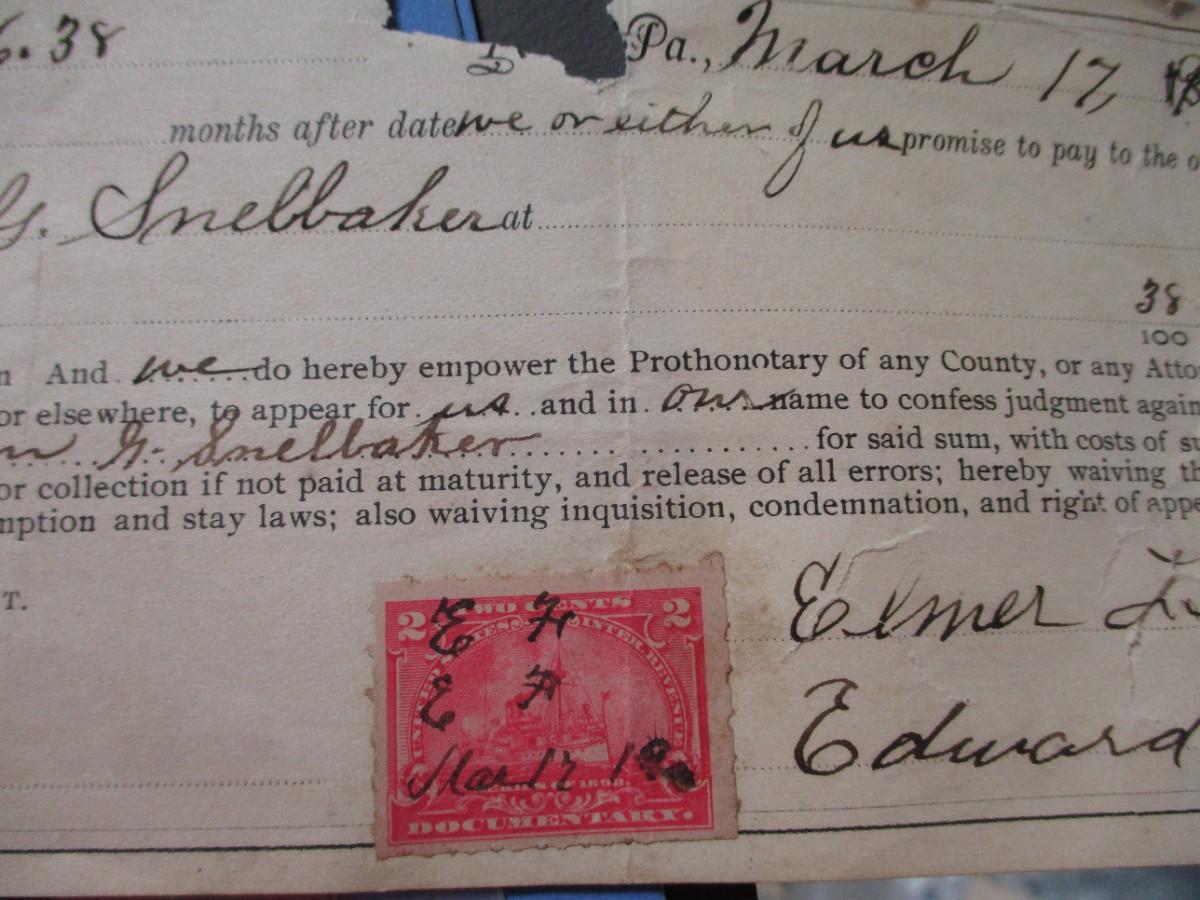 6.38 Pa., March 17, 18
months after date we or either of us promise to pay to the o
G. Snelbaker at
38
100
n And we do hereby empower the Prothonotary of any County, or any Atto
or elsewhere, to appear for us and in our name to confess judgment again
n G. Snelbaker for said sum, with costs of su
or collection if not paid at maturity, and release of all errors; hereby waiving th
mption and stay laws; also waiving inquisition, condemnation, and right of appe
T.
Elmer
Edward
2 TWO CENTS 2
UNITED STATES INTER. REVENUE
E F
E F
Mar 17
SERIES OF 1898.
DOCUMENTARY.